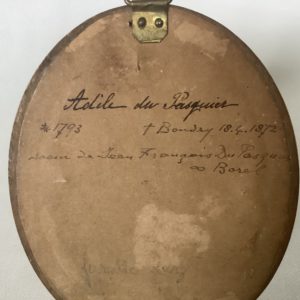 Adèle du Pasquier
* 1793 † Boudry 18.4.1872
soeur de Jean François DuPasquier
∞ Borel